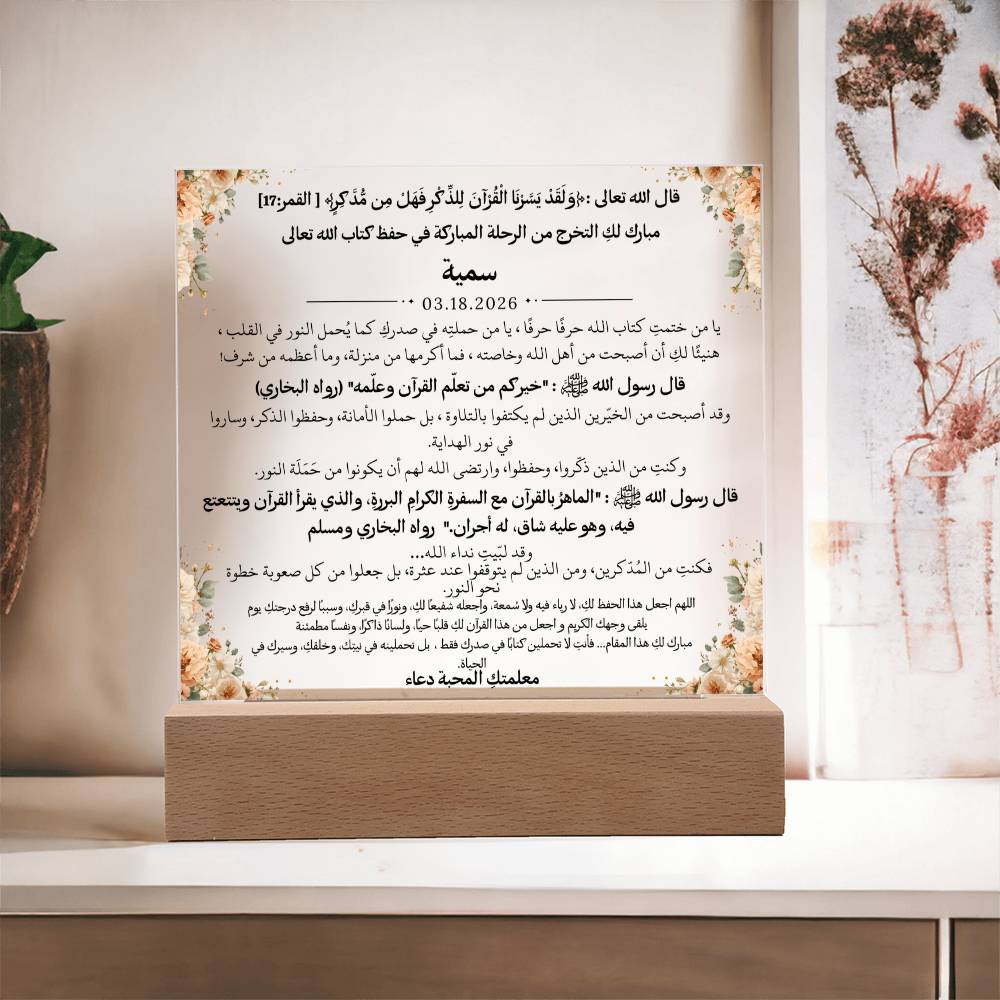 قال الله تعالى :﴿وَلَقَدْ يَسَّرْنَا الْقُرْآنَ لِلذِّكْرِ فَهَلْ مِن مُّدَّكِرٍ﴾ [ القمر:17]
مبارك لكِ التخرج من الرحلة المباركة في حفظ كتاب الله تعالى
سمية
03.18.2026
يا من ختمتِ كتاب الله حرفًا حرفًا ، يا من حملتِه في صدركِ كما يُحمل النور في القلب ،
هنيئًا لكِ أن أصبحت من أهل الله وخاصته ، فما أكرمها من منزلة، وما أعظمه من شرف!
قال رسول الله ﷺ : "خيركم من تعلّم القرآن وعلّمه" (رواه البخاري)
وقد أصبحت من الخيّرين الذين لم يكتفوا بالتلاوة ، بل حملوا الأمانة، وحفظوا الذكر، وساروا
في نور الهداية.
وكنتِ من الذين ذكّروا، وحفظوا، وارتضى الله لهم أن يكونوا من حَمَلَة النور.
قال رسول الله ﷺ : "الماهرُ بالقرآن مع السفرةِ الكرامِ البررةِ، والذي يقرأ القرآن ويتتعتع
فيه، وهو عليه شاق، له أجران." رواه البخاري ومسلم
وقد لبّيتِ نداء الله...
فكنتِ من المُدّكرين، ومن الذين لم يتوقفوا عند عثرة، بل جعلوا من كل صعوبة خطوة
نحو النور.
اللهم اجعل هذا الحفظ لكِ، لا رياء فيه ولا سُمعة، واجعله شفيعًا لكِ، ونورًا في قبركِ، وسببًا لرفع درجتكِ يومِ
يلقى وجهك الكريم و اجعل من هذا القرآن لكِ قلبًا حيًا، ولسانًا ذاكرًا، ونفسًا مطمئنة
مبارك لكِ هذا المقام... فأنتِ لا تحملين كتابًا في صدرك فقط ، بل تحملينه في نيتِك، وخلقكِ، وسيرك في
الحياة.
معلمتكِ المحبة دعاء